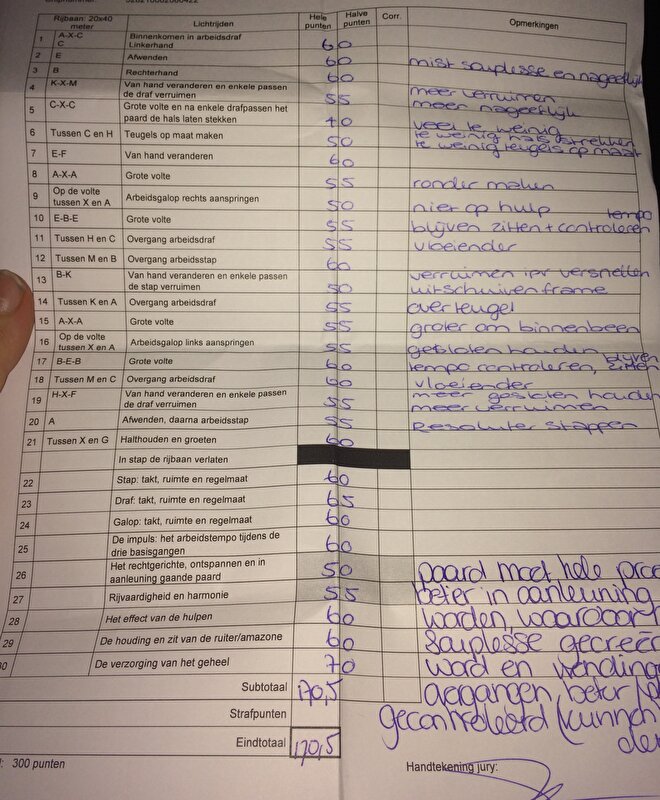 Rijbaan: 20x40 meter Lichtrijden Hele punten Halve punten Corr. Opmerkingen
1 A-X-C Binnenkomen in arbeidsdraf
C Linkerhand 60
2 E Afwenden 60
3 B Rechterhand 60 mist souplesse en nageeflijk
4 K-X-M Van hand veranderen en enkele passen de draf verruimen 55 meer verruimen
5 C-X-C Grote volte en na enkele drafpassen het paard de hals laten strekken 40 meer nageeflijk
veel te weinig
6 Tussen C en H Teugels op maat maken 50 te weinig hals strekken
te weinig teugels op maat
7 E-F Van hand veranderen 60
8 A-X-A Grote volte 55 ronder maken
9 Op de volte tussen X en A Arbeidsgalop rechts aanspringen 50 niet op hulp tempo
10 E-B-E Grote volte 55 blijven zitten + controleren
11 Tussen H en C Overgang arbeidsdraf 55 vloeiender
12 Tussen M en B Overgang arbeidsstap 60
13 B-K Van hand veranderen en enkele passen de stap verruimen 50 verruimen ipv versnellen
uitschuiven frame
14 Tussen K en A Overgang arbeidsdraf 55 overteugel
15 A-X-A Grote volte 55 groter om binnenbeen
16 Op de volte tussen X en A Arbeidsgalop links aanspringen 55 gesloten houden
17 B-E-B Grote volte 60 tempo controleren, blijven zitten
18 Tussen M en C Overgang arbeidsdraf 60 vloeiender
19 H-X-F Van hand veranderen en enkele passen de draf verruimen 55 meer gesloten houden
meer verruimen
20 A Afwenden, daarna arbeidsstap 55 Resoluter stappen
21 Tussen X en G Halthouden en groeten 60
In stap de rijbaan verlaten
22 Stap: takt, ruimte en regelmaat 60
23 Draf: takt, ruimte en regelmaat 65
24 Galop: takt, ruimte en regelmaat 60
25 De impuls: het arbeidstempo tijdens de drie basisgangen 60
26 Het rechtgerichte, ontspannen en in aanleuning gaande paard 50 paard moet hele
27 Rijvaardigheid en harmonie 55 beter in aanleuning
28 Het effect van de hulpen 60 worden, waardoor
29 De houding en zit van de ruiter/amazone 60 souplesse
30 De verzorging van het geheel 70 word en wending
Subtotaal 170,5 overgangen, beter
Strafpunten gecontroleerd kunnen
Eindtotaal 170,5
300 punten Handtekening jury: